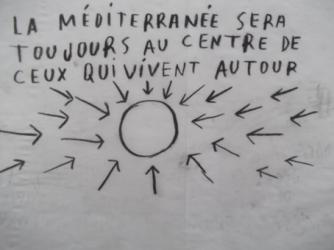 LA MÉDITERRANÉE SERA
TOUJOURS AU CENTRE DE
CEUX QUI VIVENT AUTOUR